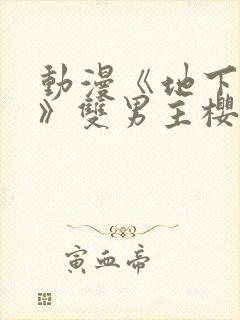 動漫《地下
》雙男主櫻
寅血帝